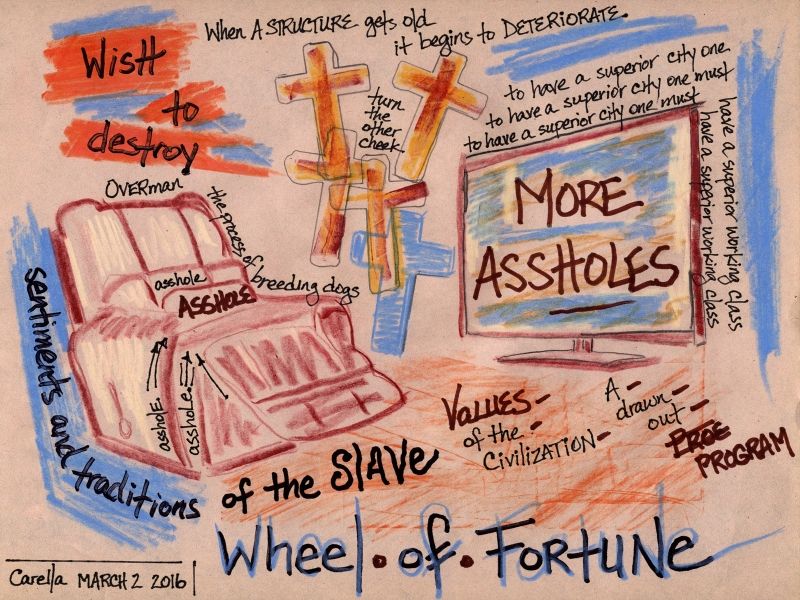 When A STRUCTURE gets old
it begins to DETERIORATE.
WisH
to
destroy
turn
the
other
cheek.
to have a superior city one
to have a superior city one must
to have a superior city one must
have a superior working class
have a superior working class
MORE
ASSHOLES
OVERman
the process of
breeding dogs
asshole
ASSHOLE
asshole.
asshole.
sentiments and traditions
of the SlAVe
VALUES-
of the -
CiVILIZATION-
A -
drawn -
out -
PROE
PROGRAM
Wheel . of . FORTUNe
Carella MARCH 2 2016